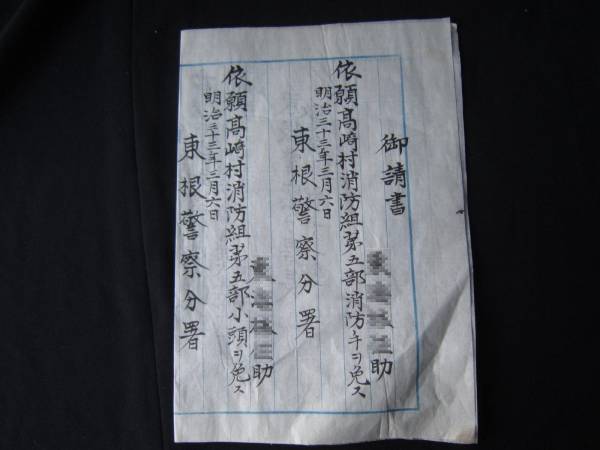 御請書
助
依願高崎村消防組第五部消防手ヲ免ス
明治三十三年三月六日
東根警察分署
助
依願高崎村消防組第五部小頭ヲ免ス
明治三十三年三月六日
東根警察分署